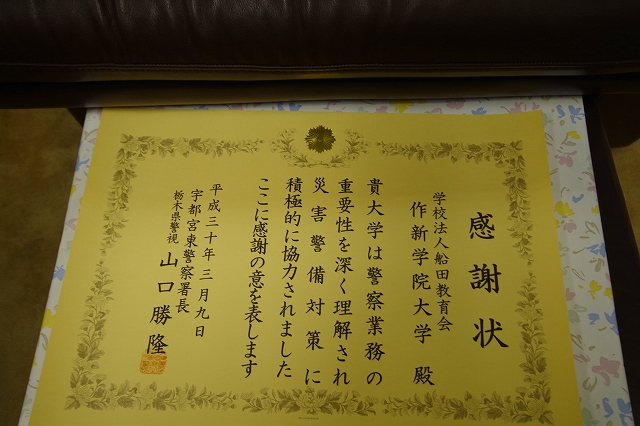 感謝状
学校法人船田教育会
作新学院大学 殿
貴大学は警察業務の
重要性を深く理解され
災害警備対策に
積極的に協力されました
ここに感謝の意を表します
平成三十年三月九日
宇都宮東警察署長
栃木県警視 山口勝隆